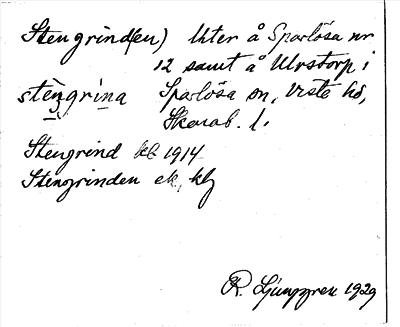 Stengrind(en) Uter å Sparlösa nr
12 samt å Ulvstorp i
stèŋgrina Sparlösa sn, Viste hd,
Skarab. l.
Stengrind kb 1914
Stengrinden ek, klj
R. Ljunggren 1929